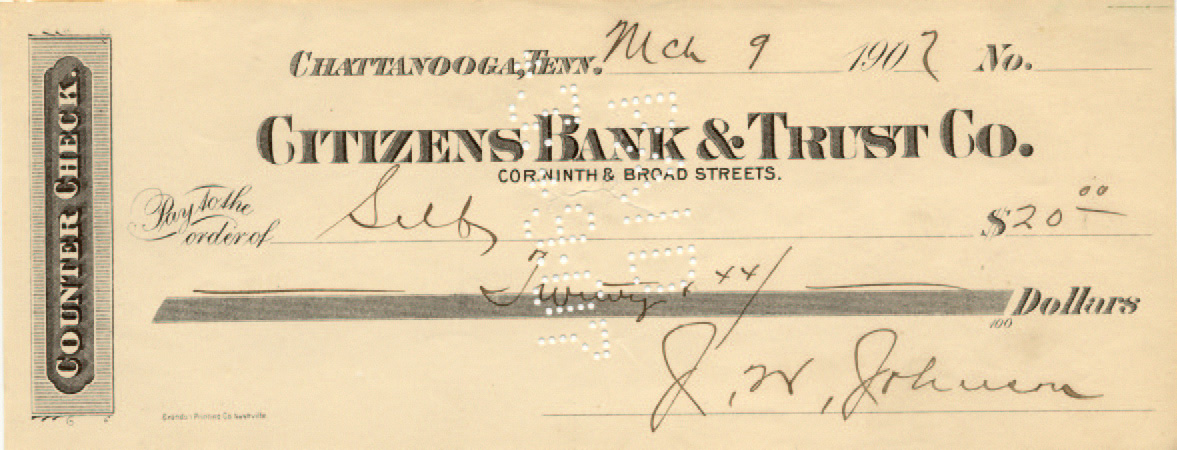 COUNTER CHECK.
CHATTANOOGA, TENN. Mch 9 1907 No.
CITIZENS BANK & TRUST CO.
COR. NINTH & BROAD STREETS.
Pay to the order of Self $20 00
Twenty & xx/100 Dollars
J. W. Johnson